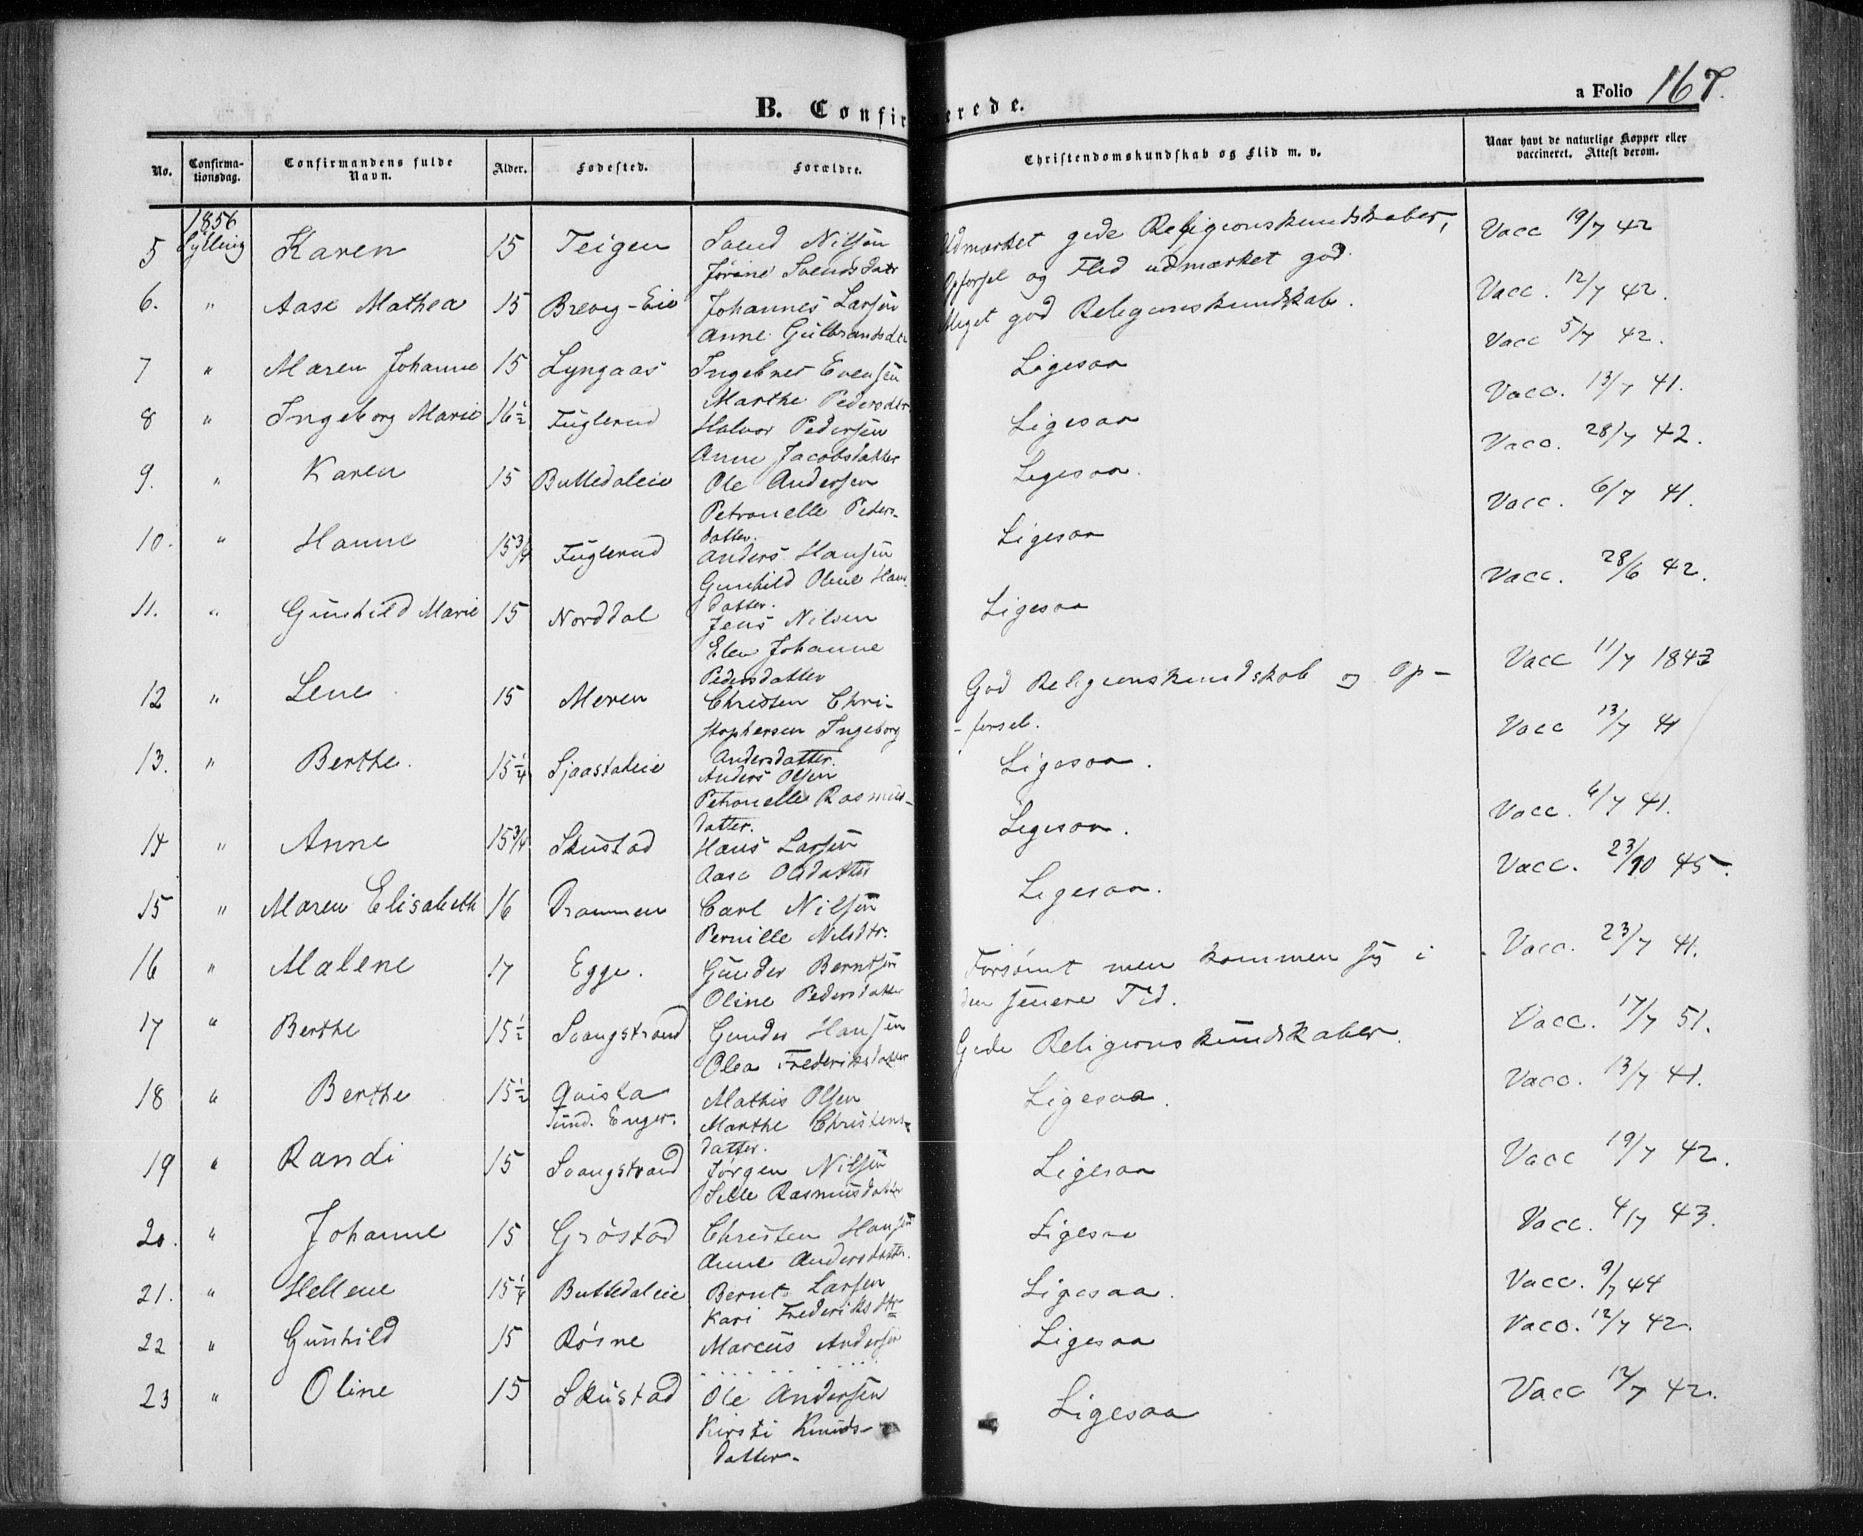 B. Confirmerede.
a Folio 167.
No. Confirma-tionsdag. Confirmandens fulde Navn. Alder. Fødested. Forældre. Christendomskundskab og Flid m. v. Naar havt de naturlige Kopper eller vaccineret. Attest derom.
1856
5 Sylling Karen 15 Teigen Svend Nilsen Udmærket gode Religionskundskaber, Vacc 19/7 42
Jørine Svendsdatr Opførsel og Flid udmærket god.
6. " Aase Mathea 15 Brevig-Eie Johannes Larsen Meget god Religionskundskab. Vacc. 12/7 42.
Anne Gulbrandsdr
7 " Maren Johanne 15 Lyngaas Ingebret Evensen Ligesaa Vacc 5/7 42.
Marthe Pedersdtr
8 " Ingeborg Marie 16½ Fuglerud Halvor Pedersen Ligesaa Vacc. 13/7 41.
Anne Jacobsdatter
9. " Karen 15 Buttedaleie Ole Andersen Ligesaa. Vacc. 28/7 42.
Petronelle Peders-
datter.
10. " Hanne 15 3/4 Fuglerud Anders Hansen Ligesaa Vacc. 6/7 41.
Gunhild Oline Hans
datter.
11. " Gunhild Marie 15 Norddal Jens Nilsen Ligesaa Vacc. 28/6 42.
Elen Johanne
Pedersdatter
12 " Lene 15 Meren Christen Chri- God Religionskundskab og Op- Vacc 11/7 1843
stophersen Ingeborg -førsel.
Andersdatter.
13. " Berthe. 15¼ Sjaastadeie Anders Olsen Ligesaa. Vacc 13/7 41
Petronelle Rasmus-
datter.
14 " Anne 15 3/4 Skustad Hans Larsen Ligesaa. Vacc. 6/7 41.
Aase Olsdatter
15 " Maren Elisabeth 16 Drammen Carl Nilsen Ligesaa. Vacc. 23/10 45.
Pernille Nilsdtr.
16 " Malene 17 Egge. Gunder Berntsen Forsømt men kommen sig i Vacc. 23/7 41.
Oline Pedersdatter den senere Tid.
17 " Berthe 15½ Svangstrand Gunder Hansen Gode Religionskundskaber. Vacc. 17/7 51.
Olea Frederiksdatter
18 " Berthe 15½ Qvista Mathis Olsen Ligesaa. Vacc. 13/7 41.
Enger. Marthe Christens-
datter.
19 " Randi 15 Svangstrand Jørgen Nilsen Ligesaa Vacc 19/7 42.
Sille Rasmusdatter
20. " Johanne 15 Grøstad Christen Hansen Ligesaa Vacc. 4/7 43.
Anne Andersdatter.
21. " Hellene 15¼ Buttedaleie Bernt Larsen Ligesaa. Vacc. 9/7 44
Kari Frederiksdtr
22 " Gunhild 15 Røsne Marcus Andersen Ligesaa Vacc. 12/7 42.
. . . . . . . .
23 " Oline 15 Skustad Ole Andersen Ligesaa Vacc 12/7 42.
Kirsti Knuds-
datter.